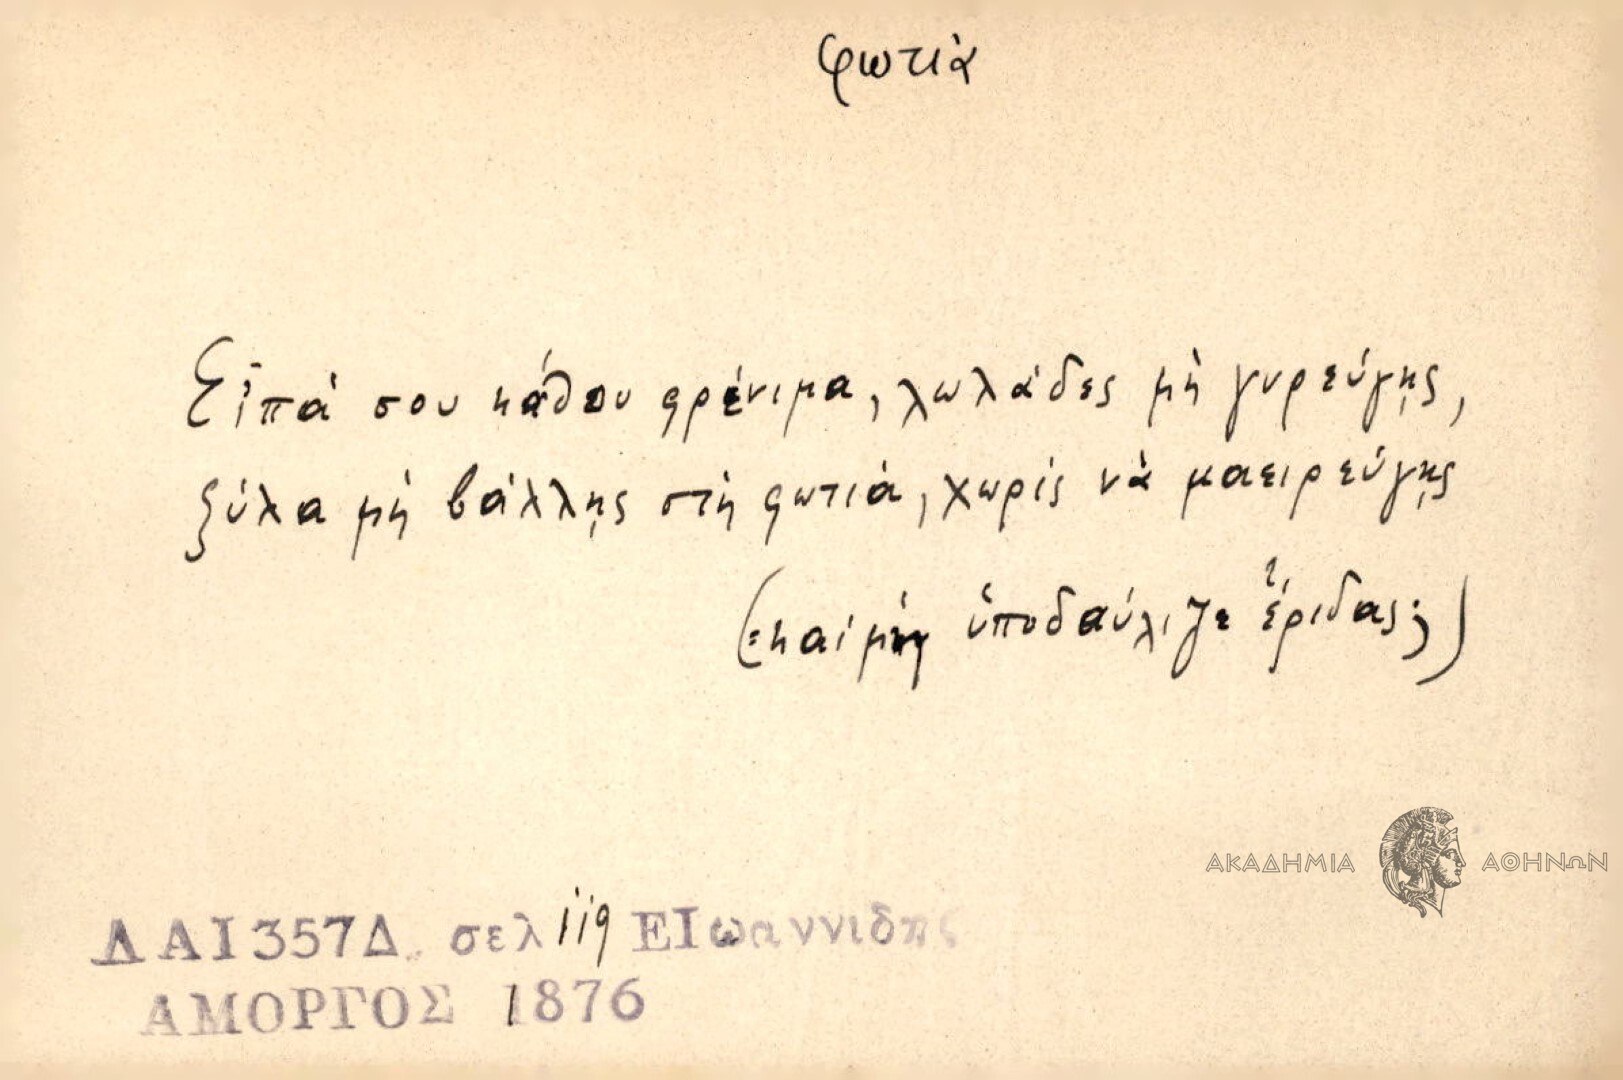 φωτιὰ
Εἶπά σου κάθου φρένιμα, λωλάδες μὴ γυρεύγῃς,
ξύλα μὴ βάλλῃς στὴ φωτιά, χωρίς νὰ μαειρεύγῃς
(=καί μὴ ὑποδαύλιζε ἔριδας;)
ΑΚΑΔΗΜΙΑ ΑΘΗΝΩΝ
ΔΑΙ357Δ. σελ 119 ΕΙωαννιδης
ΑΜΟΡΓΟΣ 1876